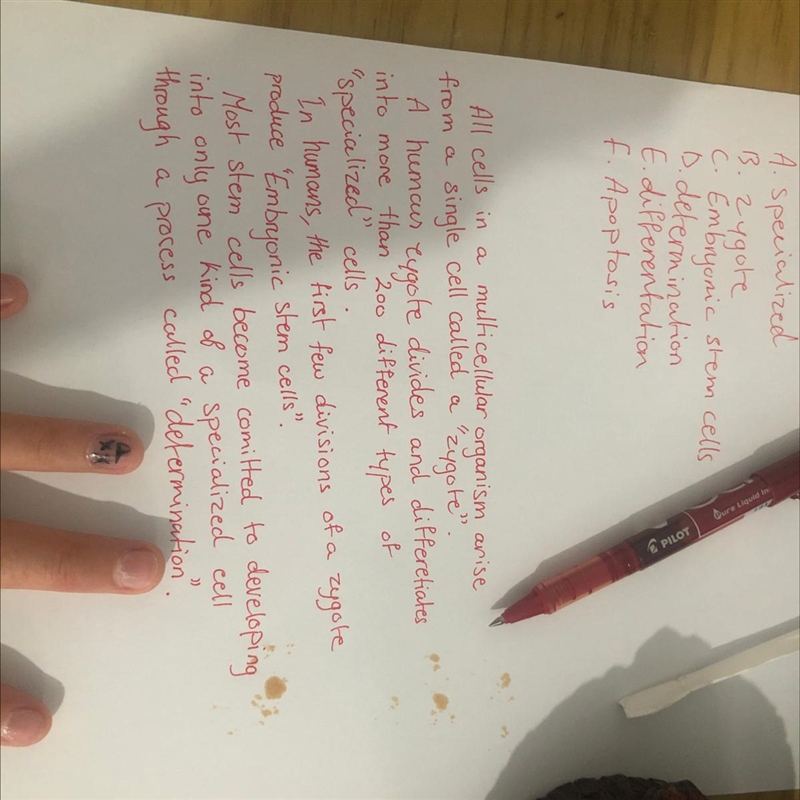 A. Specialized
B. zygote
C. Embryonic stem cells
D. determination
E. differentation
F. Apoptosis
All cells in a multicellular organism arise
from a single cell called a "zygote".
A human zygote divides and differetiates
into more than 200 different types of
"specialized" cells.
In humans, the first few divisions of a zygote
produce "Embryonic stem cells".
Most stem cells become comitted to developing
into only one kind of a specialized cell
through a process called "determination".
PILOT
Pure Liquid In